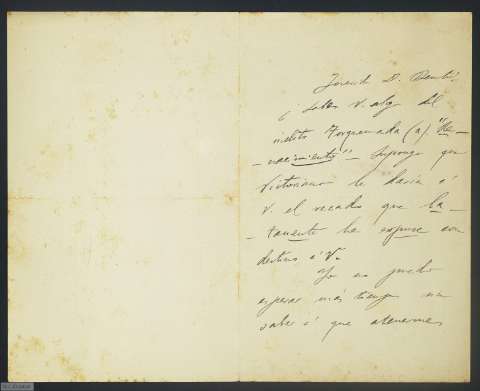 Querido D. Benito:
¿ Sabe V. algo del
inédito Torquemada (a) "Re-
-nacimiento" - Supongo que
Victoriano le daría á
V. el recado que la-
-tamente le expuse con
destino á V.
Yo no puedo
esperar más tiempo sin
saber á que atenerme